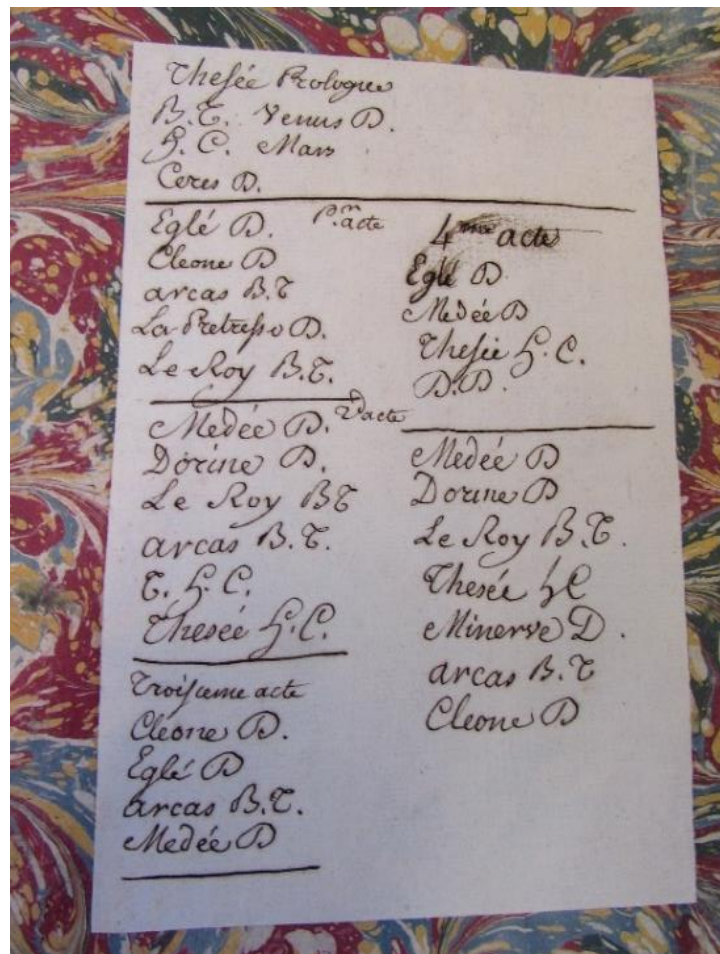 Thesée Prologue
B.T. Venus D.
H. C. Mars
Ceres D.
Eglé D. P.m acte
Cleone D
arcas B.T
La Pretresse D.
Le Roy B.T.
Medée D. 2d acte
Dorine D.
Le Roy BT
arcas B.T.
T. H. C.
Thesée H.C.
Troisieme acte
Cleone D.
Eglé D
arcas B.T.
Medée D
4me acte
Eglé D
Medée D
Thesée H. C.
D.D.
Medée D
Dorine D
Le Roy B.T.
Thesée HC
Minerve D.
arcas B.T
Cleone D